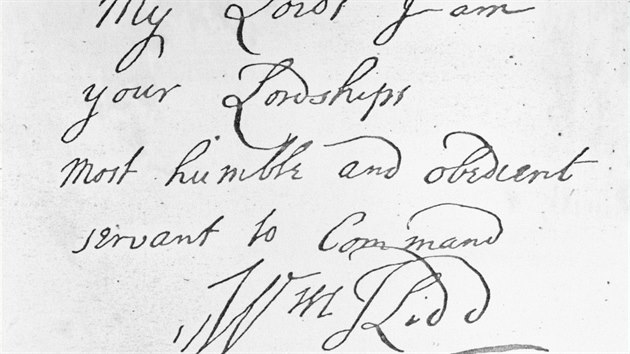 My Lord I am
your Lordships
most humble and obedient
servant to Command
Wm Kidd